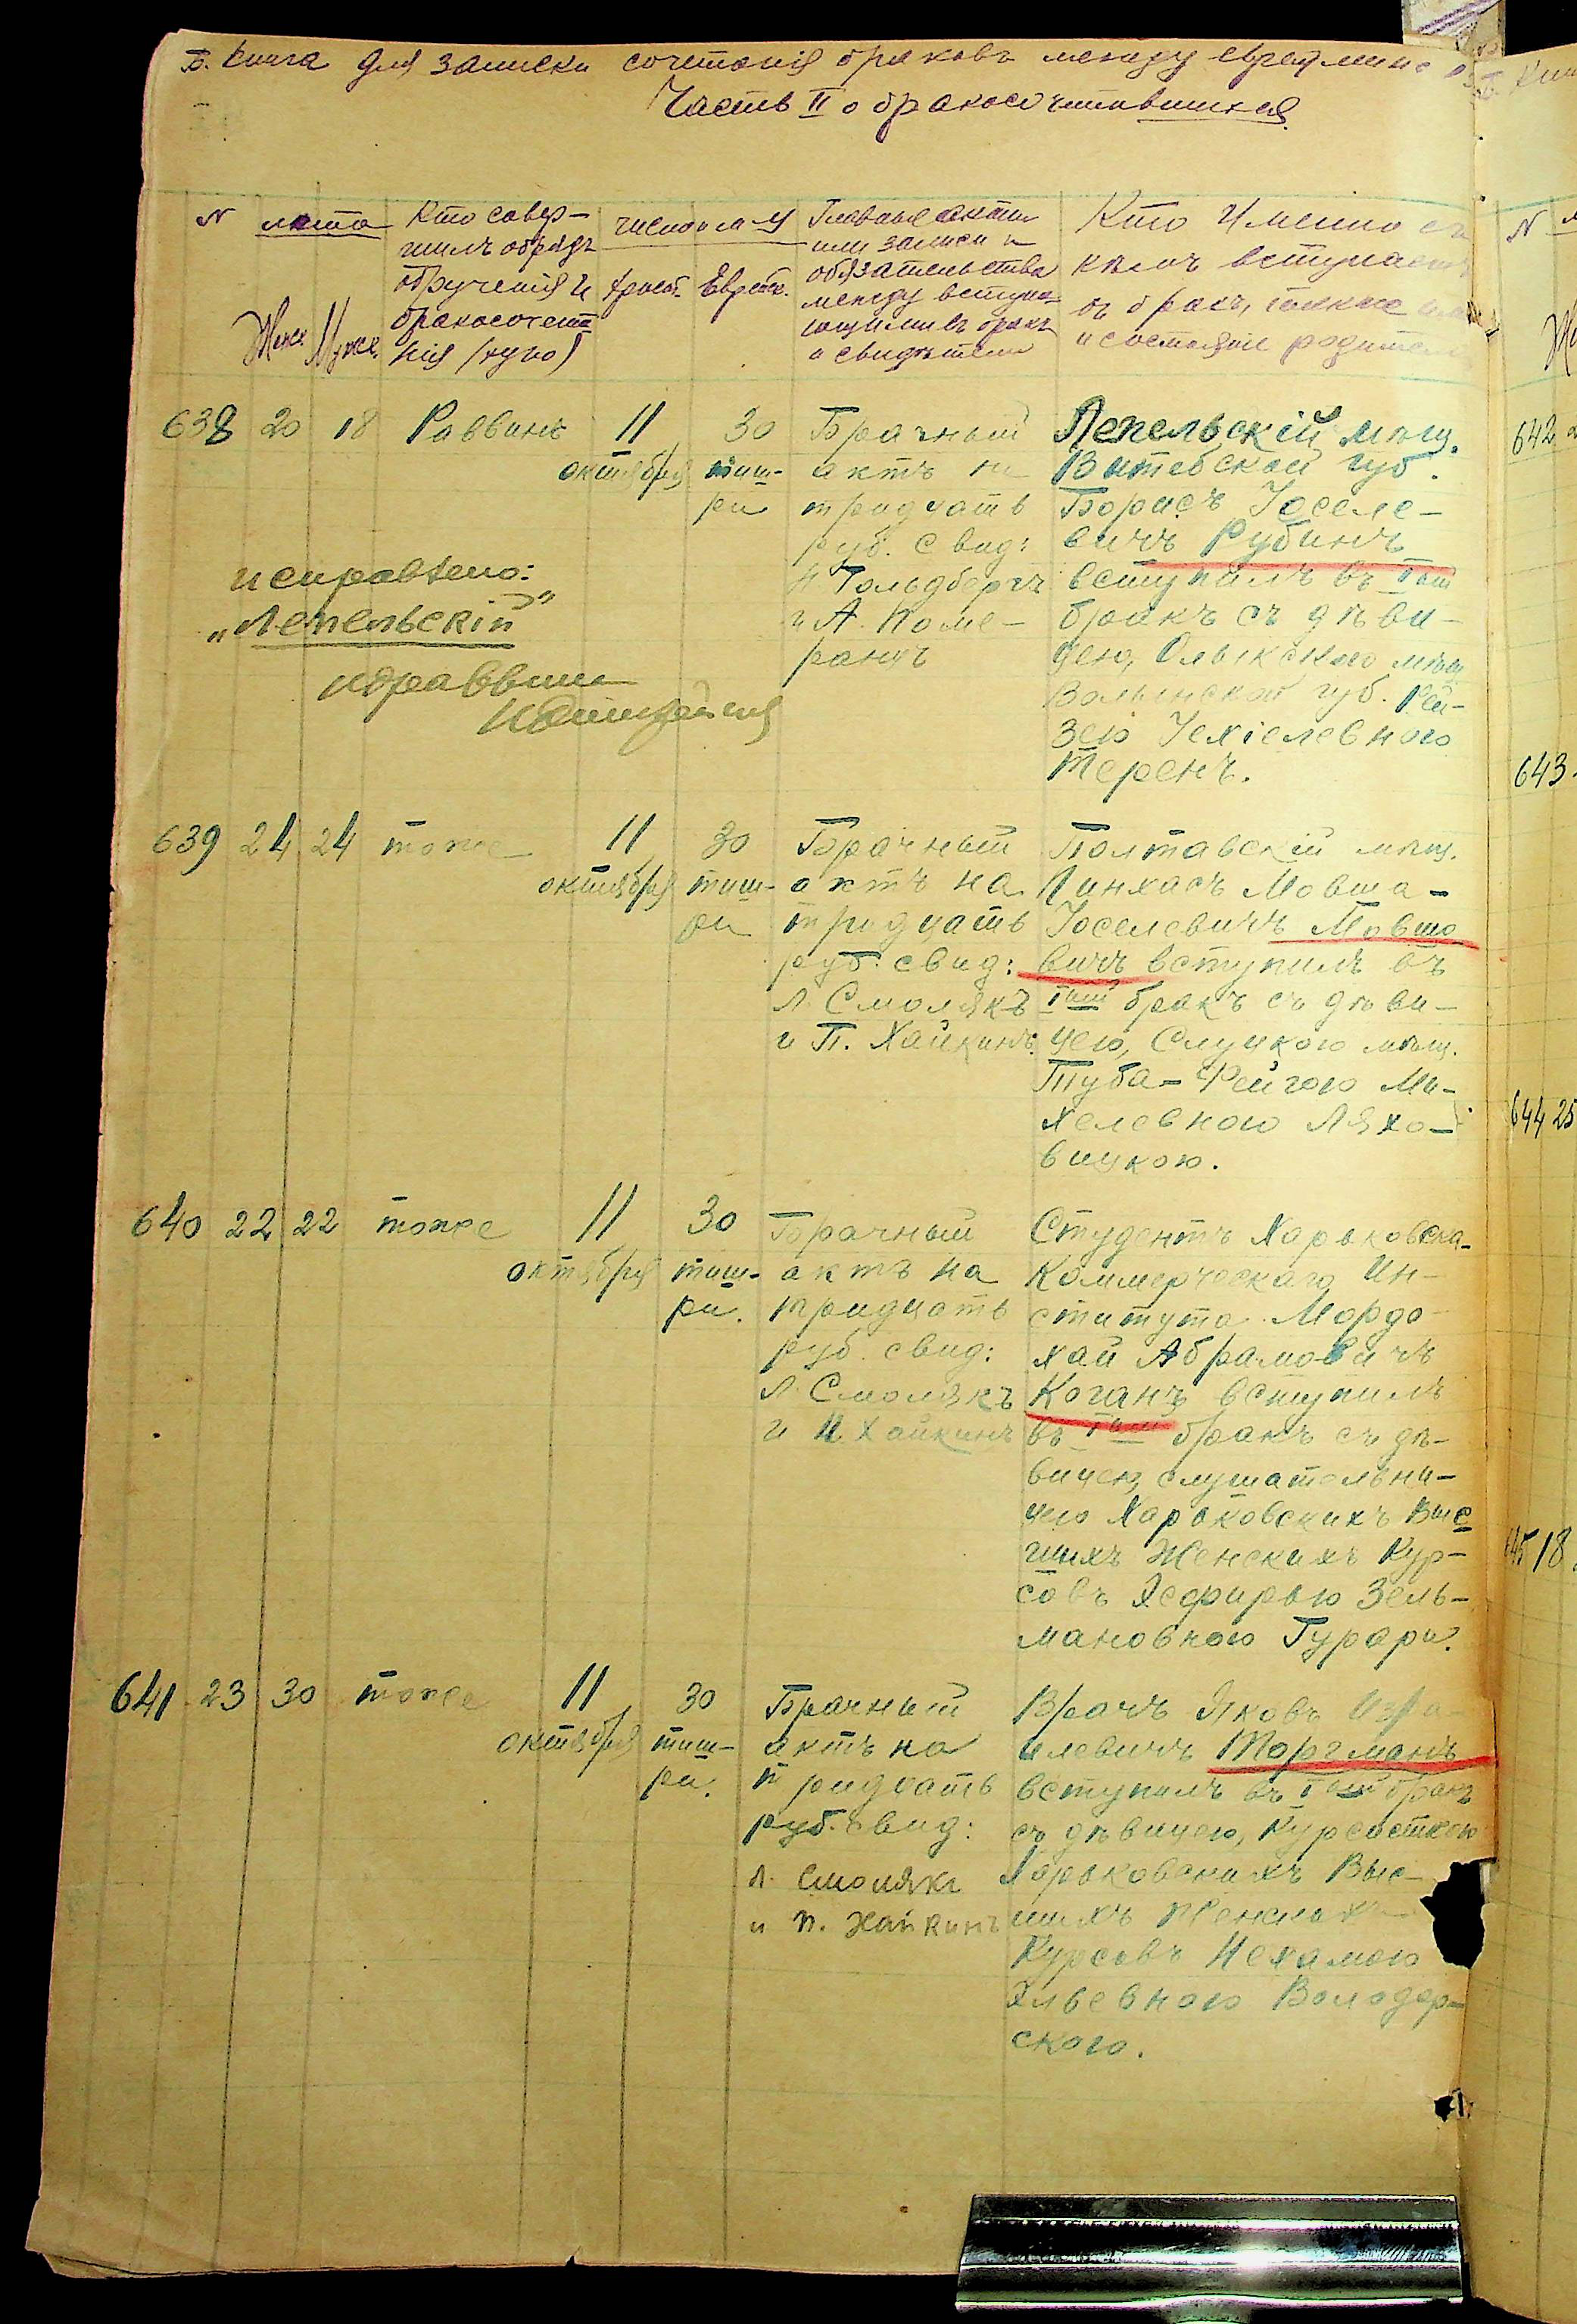 Б. Книга для записки сочетанія браковъ между евреями
Часть II о бракосочитавшихся.
N лета Кто совер-
шилъ обрядъ
обрученія и
бракосочета
нія /хупо/
Жене Мужс.
число и м-ц
Христ. Еврейск.
Главные акты
или записи и
обязательства
между вступа-
ющими въ бракъ
и свидѣтели
Кто Именно съ
кѣмъ вступаетъ
въ бракъ, также имя
и состояніе родителей
638 20 18 Раввинъ 11 октября 30 тиш-
ри
Брачный
актъ на
тридцать
руб. свид:
Гольдбергъ
и А. Поме-
ранцъ
Лепельскій мѣщ.
Витебской губ.
Борисъ Іоселе-
вичъ Рубинъ
вступилъ въ Iый
бракъ съ дѣви-
цею, Олыкскою мѣщ
Волынской губ. Рей-
зею Іехіелевною
Теренъ.
исправлено:
„Лепельскій"
639 24 24 тоже 11 октября 30 тиш-
ри
Брачный
актъ на
тридцать
руб. свид:
Л. Смолякъ
и П. Хайкинъ.
Полтавскій мѣщ.
Пинхасъ Мовша-
Іоселевичъ Мовшо
вичъ вступилъ въ
Iый бракъ съ дѣви-
цею, Слуцкою мѣщ.
Туба-Фейгою Ми-
хелевною Ляхо-
вицкою.
640 22 22 тоже 11 октября 30 тиш-
ри.
Брачный
актъ на
тридцать
руб. свид:
Л. Смолякъ
и П. Хайкинъ
Студентъ Харьковска-
Коммерческаго Ин-
ститута Мордо-
хай Абрамовичъ
Коганъ вступилъ
въ Iый бракъ съ дѣ-
вицею, слушательни-
цею Харьковскихъ Выс
шихъ Женскихъ Кур-
совъ Эсфирью Зель-
мановною Гурари.
641 23 30 тоже 11 октября 30 тиш-
ри.
Брачный
актъ на
тридцать
руб. свид:
Л. Смолякъ
и П. Хайкинъ
Врачъ Яковъ Изра-
илевичъ Торгманъ
вступилъ въ Iый бракъ
съ дѣвицею, Курсисткою
Харьковскихъ Выс-
шихъ Женскихъ
Курсовъ Нехамою
Эльевною Володар-
скою.
N
642
643
644 25
18